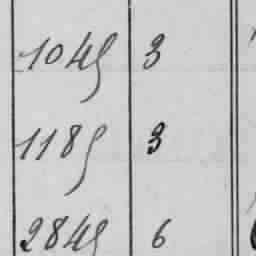 1045 3
1185 3
2845 6